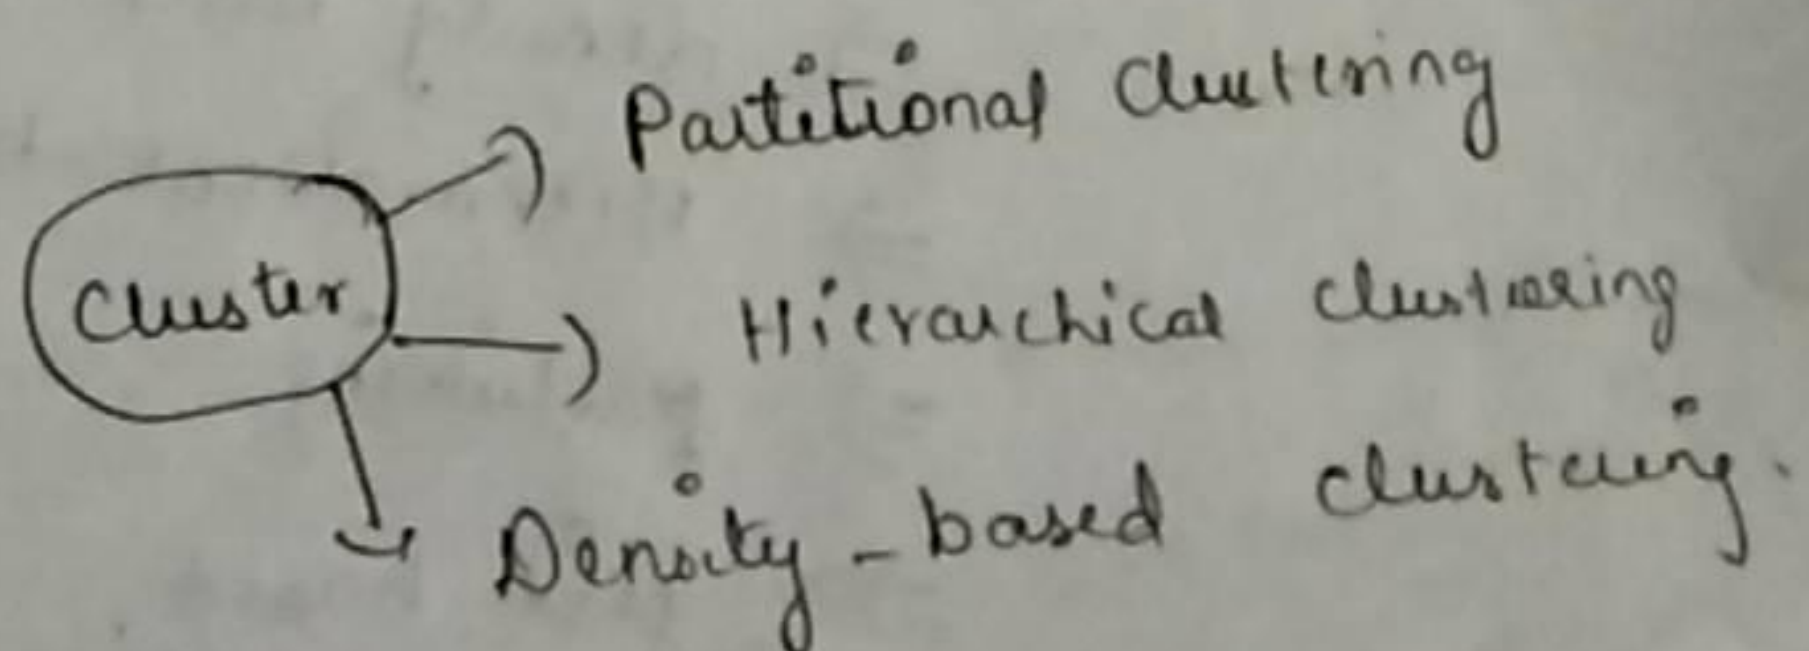 Partitional clustering
Cluster
Hierarchical clustering
Density-based clustering.